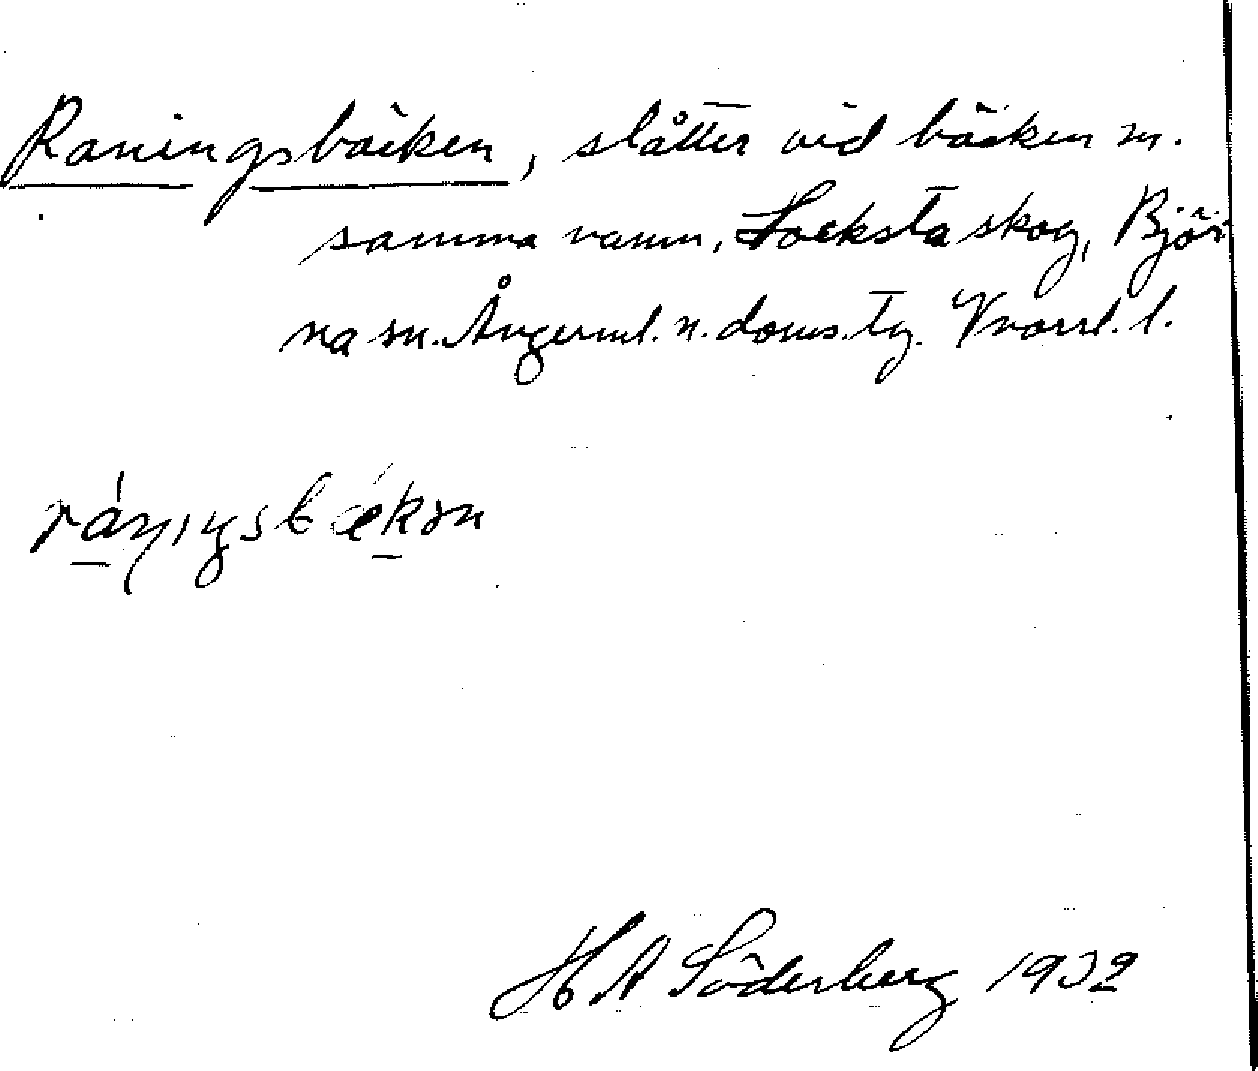 Raningsbäcken, slåtter vid bäcken m.
samma namn, Locksta skog, Björ
na sn. Ångerml. n. doms. tg. Vnorrl. l.
H A Söderberg 1932